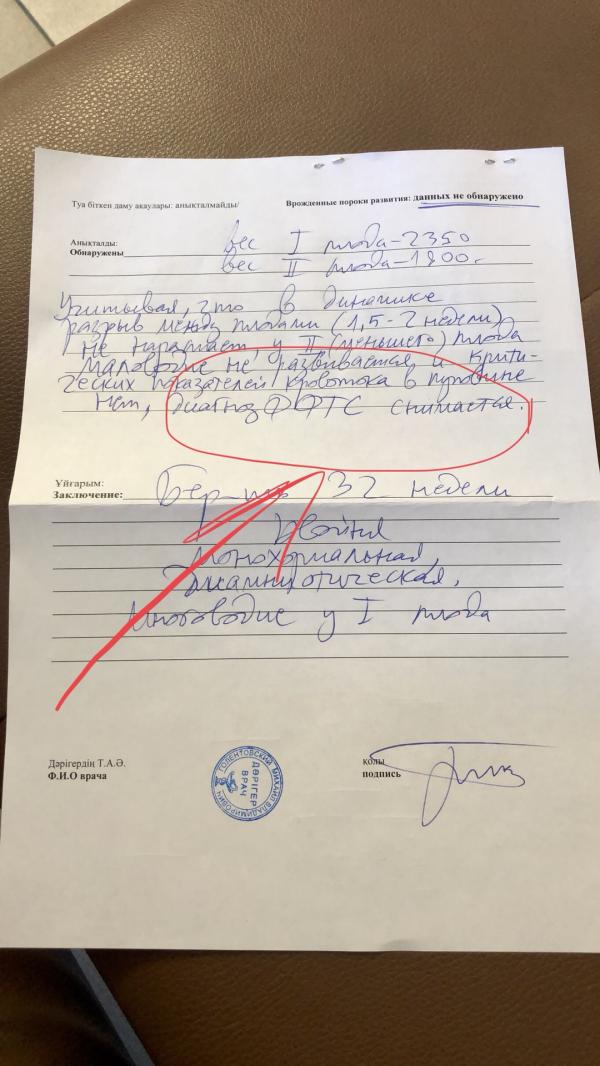 Туа біткен даму ақаулары: анықталмайды/
Врожденные пороки развития: данных не обнаружено
Анықталды:
Обнаружены вес I плода-2350
вес II плода-1800г
Учитывая, что в динамике
разрыв между плодами (1,5-2 недели)
не нарастает, у II (меньшего) плода
маловодие не развивается и крити-
ческих показателей кровотока в пуповине
нет, диагноз ФФТС снимается.
Ұйғарым:
Заключение: Бер-ть 32 недели
Двойня
монохориальная,
диамниотическая,
Многоводие у I плода
Дәрігердің Т.А.Ә.
Ф.И.О врача
қолы
подпись
ГОЛЕНТОВСКИЙ МИХАИЛ ВЛАДИМИРОВИЧ
ДӘРІГЕР
ВРАЧ